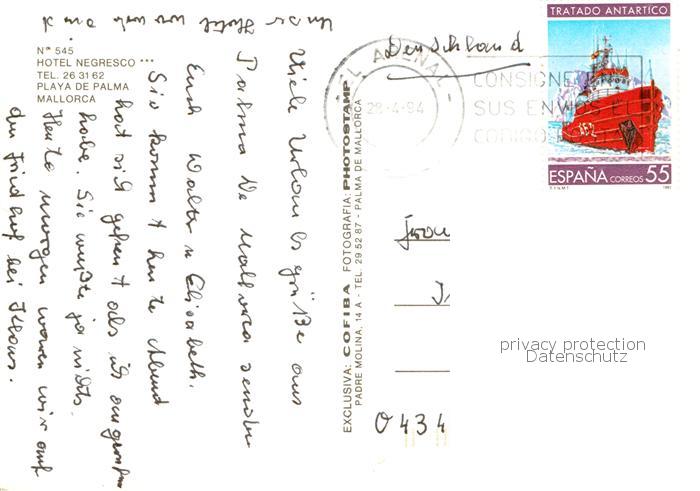 Nº 545
HOTEL NEGRESCO ***
TEL. 26 31 62
PLAYA DE PALMA
MALLORCA
Viele Urlaubsgrüße aus
Palma De Mallorca senden
Euch Walter u Elisabeth.
Sie kommt heute Abend
hat sich gefreut als ich angerufen
habe. Sie wußte ja nichts.
Heute morgen waren wir auf
den Friedhof bei Klaus.
Hotel
EXCLUSIVA: COFIBA FOTOGRAFIA: PHOTOSTAMP
PADRE MOLINA, 14 A - TEL. 29 52 87 - PALMA DE MALLORCA
Deutschland
L ARENAL
28-4-94
CONSIGNE EN
SUS ENVIOS
CODIGO
TRATADO ANTARTICO
ESPAÑA CORREOS 55
Frau
0434
privacy protection
Datenschutz